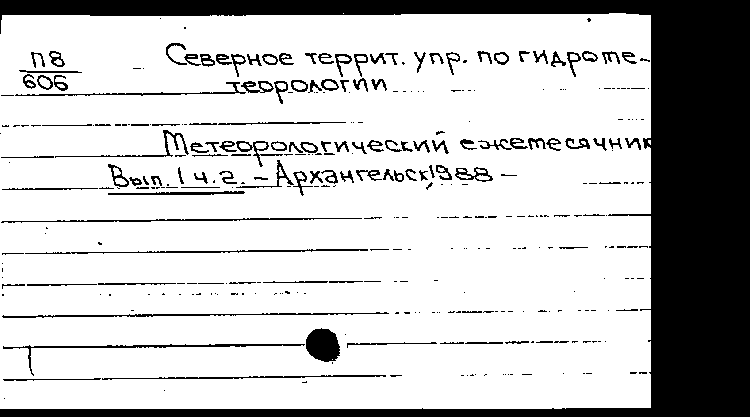 П8
606
Северное террит. упр. по гидроме-
теорологии
Метеорологический ежемесячник
Вып. 1 ч. 2. – Архангельск, 1988 –